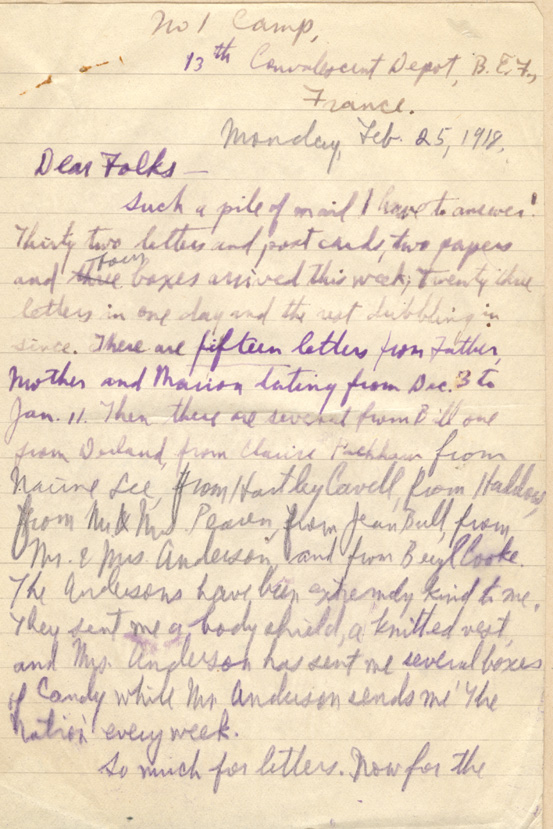 No 1 Camp,
13th Convalescent Depot, B.E.F.,
France.
Monday, Feb. 25, 1918.
Dear Folks —
Such a pile of mail I have to answer!
Thirty two letters and post cards, two papers
and three four boxes arrived this week; Twenty three
letters in one day and the rest dribbling in
since. There are fifteen letters from Father,
Mother and Marion dating from Dec. 3 to
Jan. 11. Then there are several from Bill one
from Dorland, from Claire from
Lee, from Hartley Cavell, from
from Mr & Mrs. Pearen, from Jean Bull, from
Mr. & Mrs. Anderson, and from Beryl Cooke.
The Andersons have been extremely kind to me.
They sent me a body shield, a knitted vest,
and Mrs. Anderson has sent me several boxes
of Candy while Mr. Anderson sends me 'The
Nation' every week.
So much for letters. Now for the